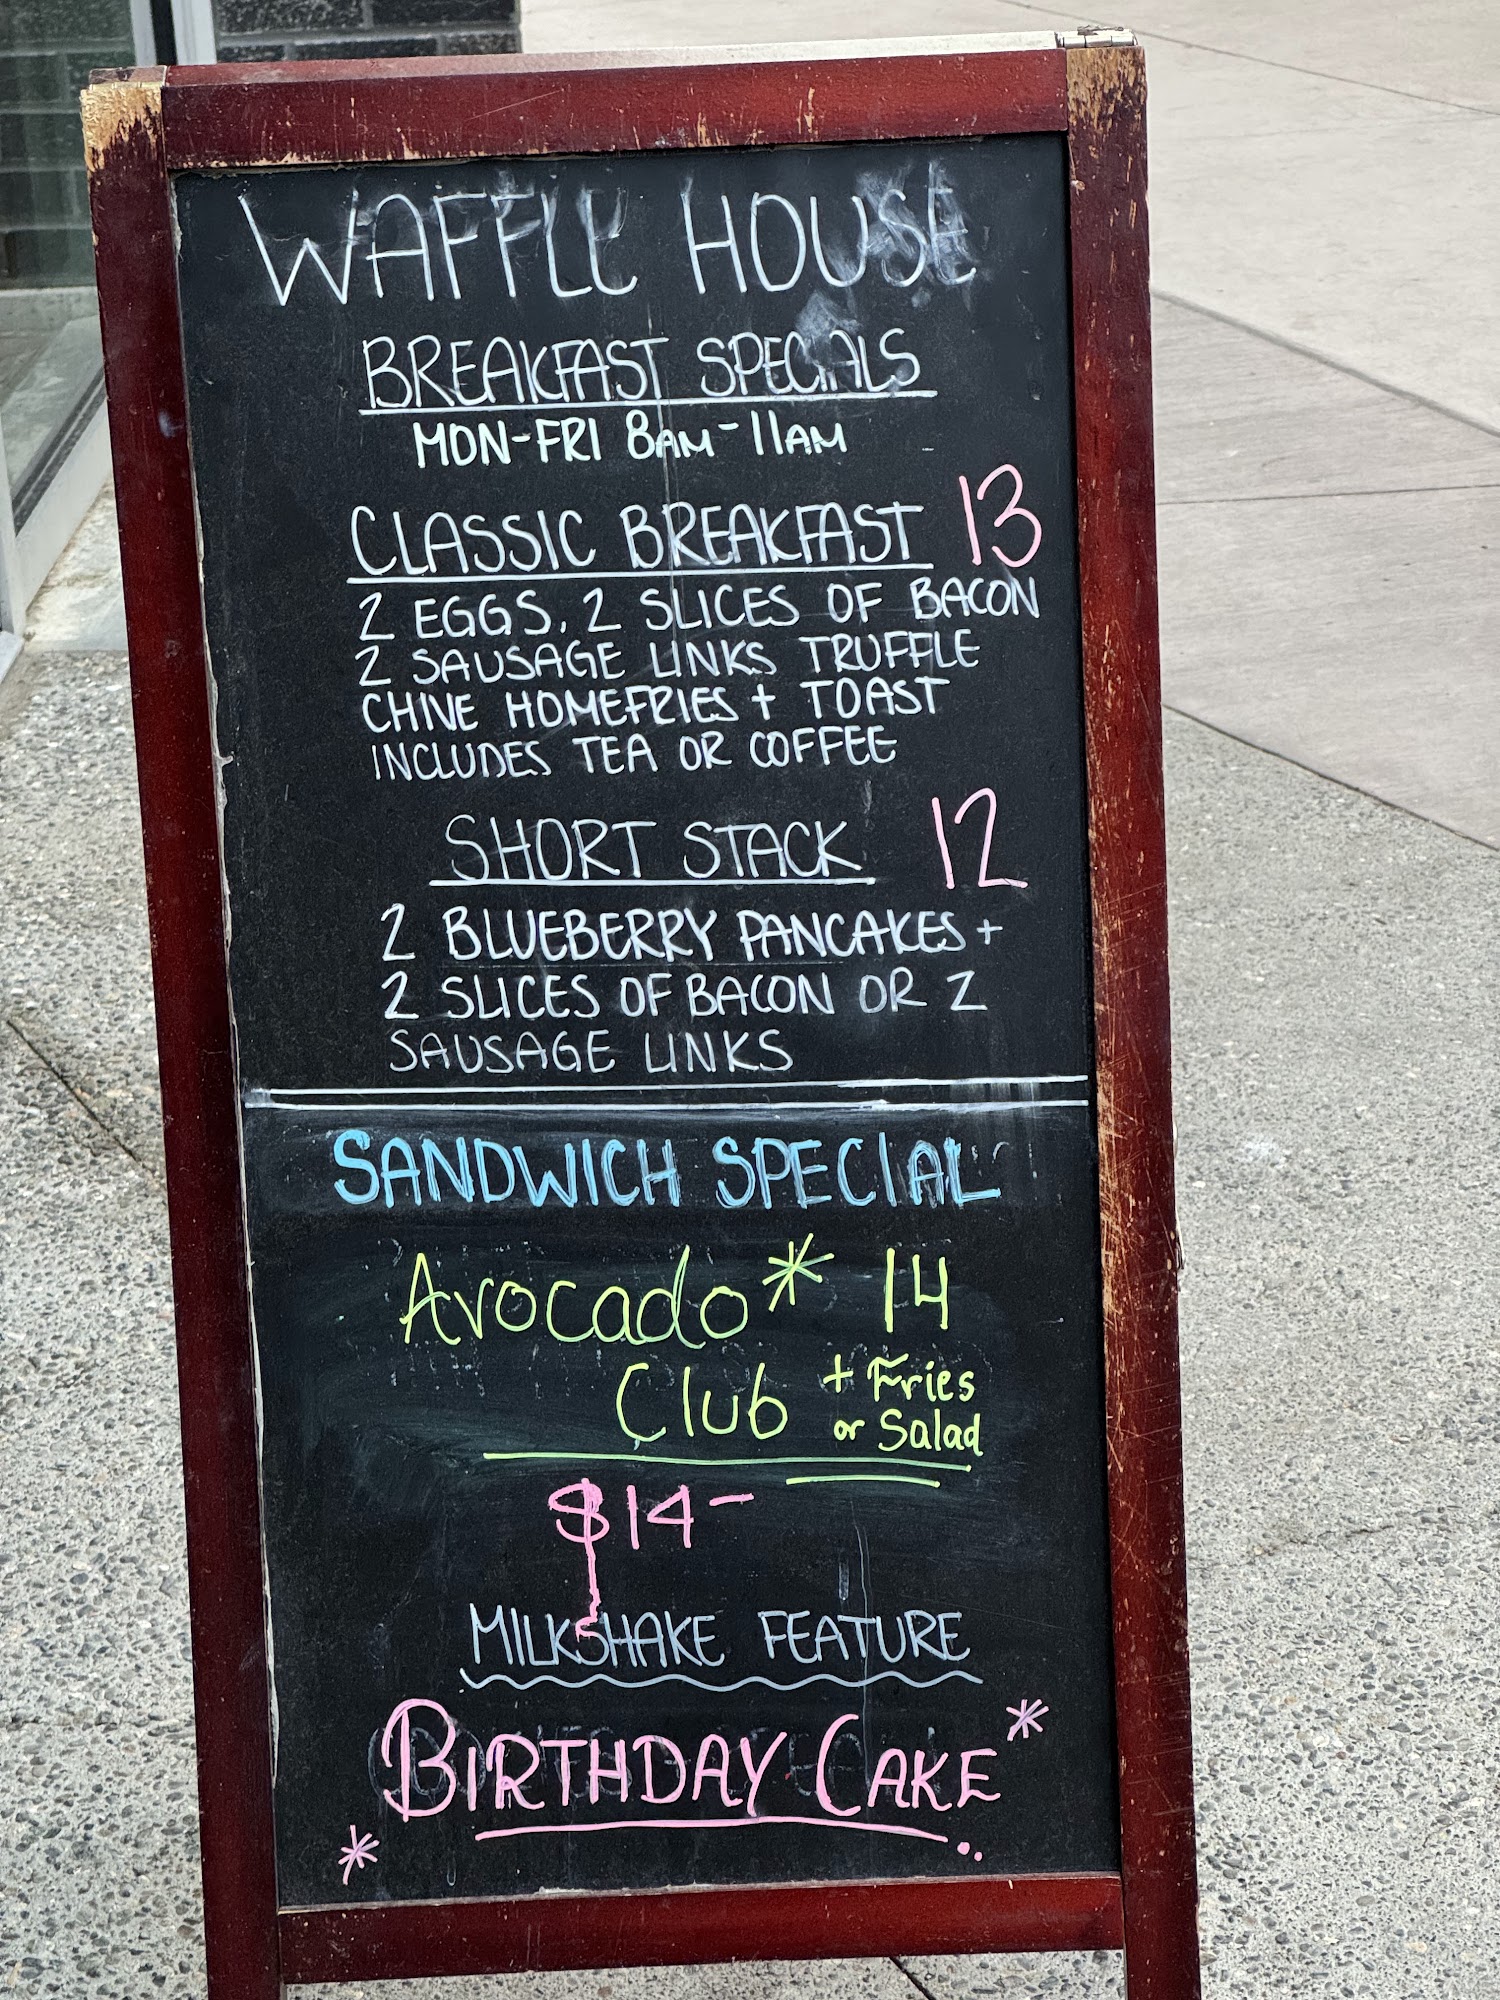 WAFFLE HOUSE
BREAKFAST SPECIALS
MON-FRI 8AM-11AM
CLASSIC BREAKFAST 13
2 EGGS, 2 SLICES OF BACON
2 SAUSAGE LINKS TRUFFLE
CHIVE HOMEFRIES + TOAST
INCLUDES TEA OR COFFEE
SHORT STACK 12
2 BLUEBERRY PANCAKES +
2 SLICES OF BACON OR 2
SAUSAGE LINKS
SANDWICH SPECIAL
Avocado* 14
Club + Fries
or Salad
$14-
MILKSHAKE FEATURE
BIRTHDAY CAKE*
*